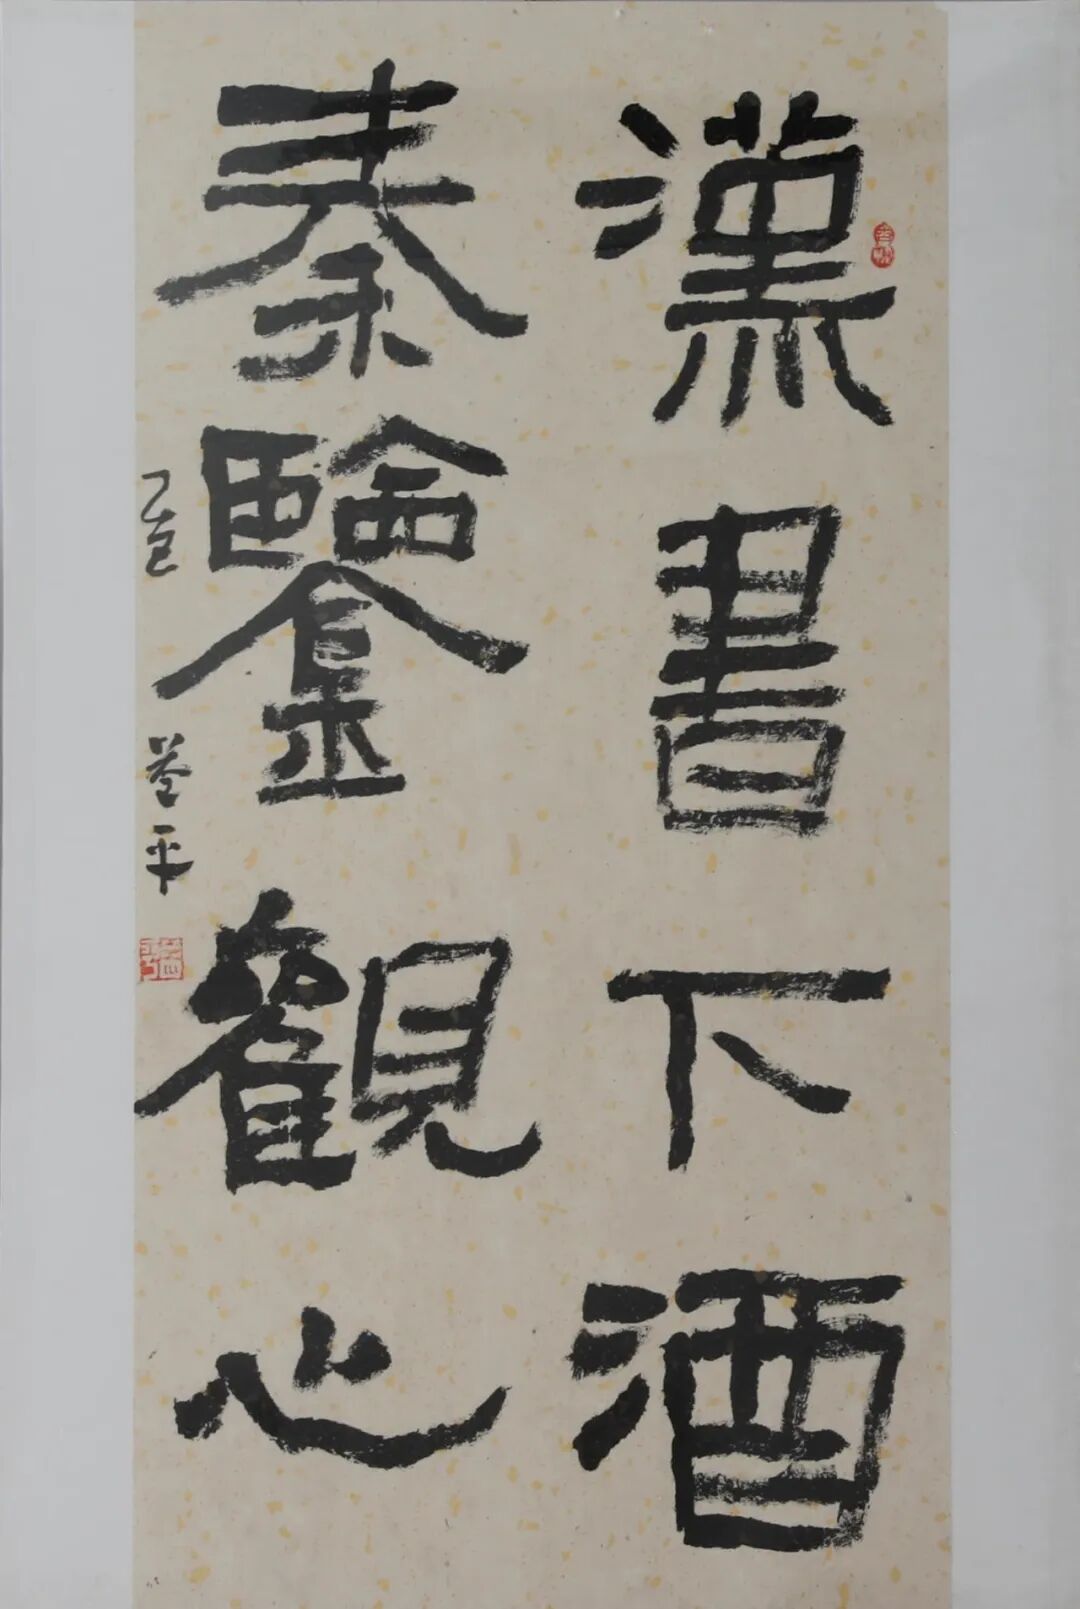 漢書下酒
秦鑒觀心
乙巳 平